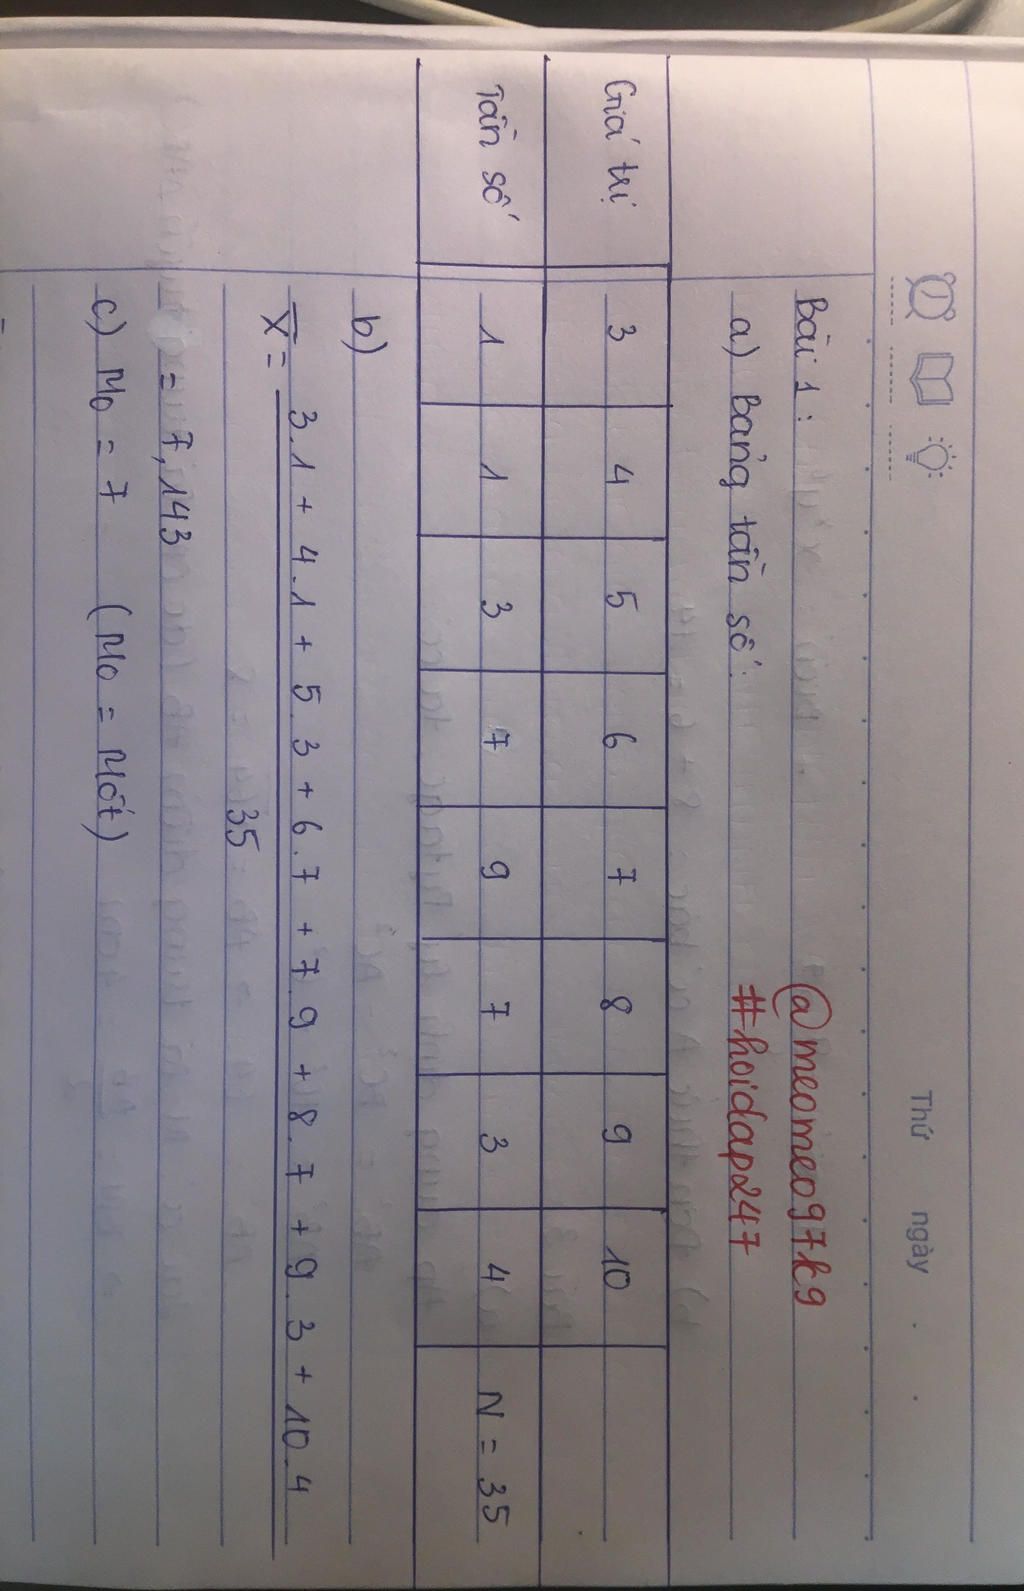 Thứ ngày
Bài 1: @meomeo97k9
a) Bảng tần số: #hoidap247
Giá trị 3 4 5 6 7 8 9 10
Tần số 1 1 3 7 9 7 3 4 N = 35
b)
X̅ = 3.1 + 4.1 + 5.3 + 6.7 + 7.9 + 8.7 + 9.3 + 10.4
35
= 7,143
c) M₀ = 7 (M₀ = Mốt)